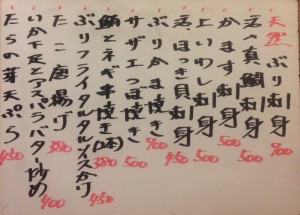 天然 ぶり刺身
活〆真鯛刺身 500
かます刺身 500
上いわし刺身 500
活ほっき貝刺身
ぶりかま焼き
サザエつぼ焼き 500
とネギ串焼き(1本) 380
ぶりフライタルタルソースかけ 450
たこ唐揚げ 380
いか下足とアスパラバター炒め 400
たらの芽天ぷら 450